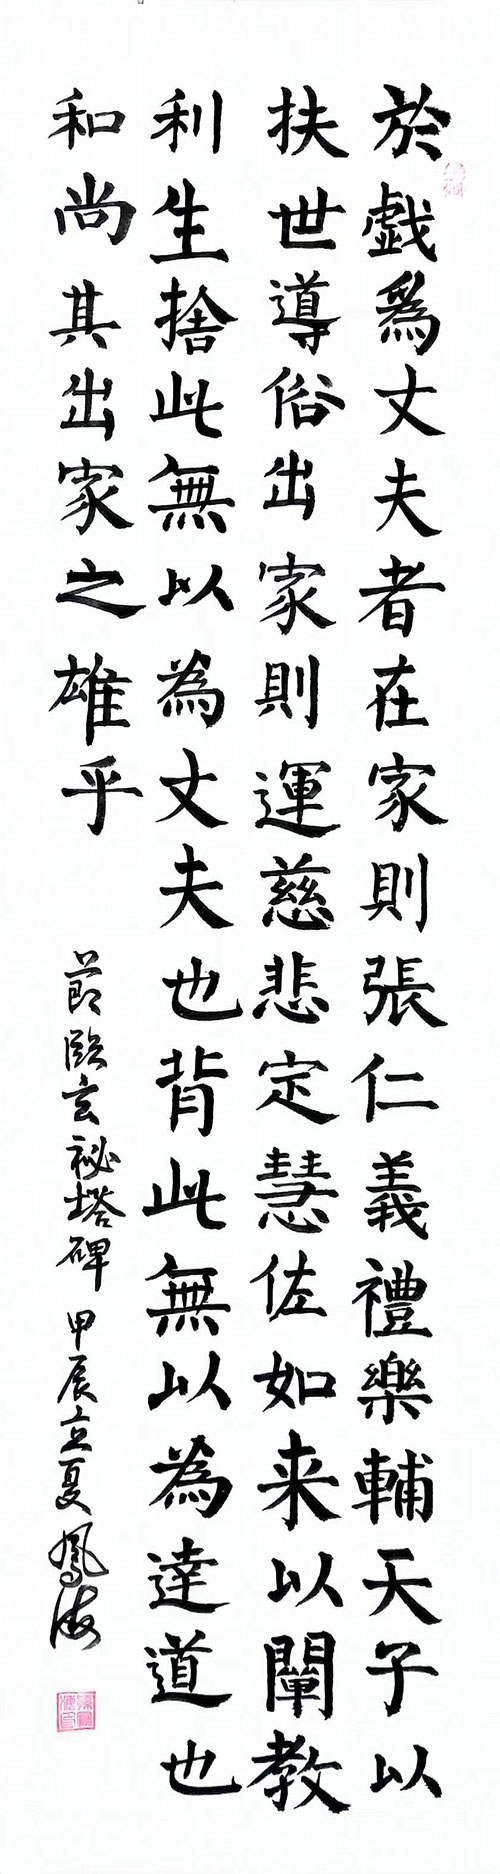 於戯爲丈夫者在家則張仁義禮樂輔天子以
扶世導俗出家則運慈悲定慧佐如来以闡教
利生捨此無以為丈夫也背此無以為達道也
和尚其出家之雄乎
節臨玄祕塔碑 甲辰立夏 鳳海